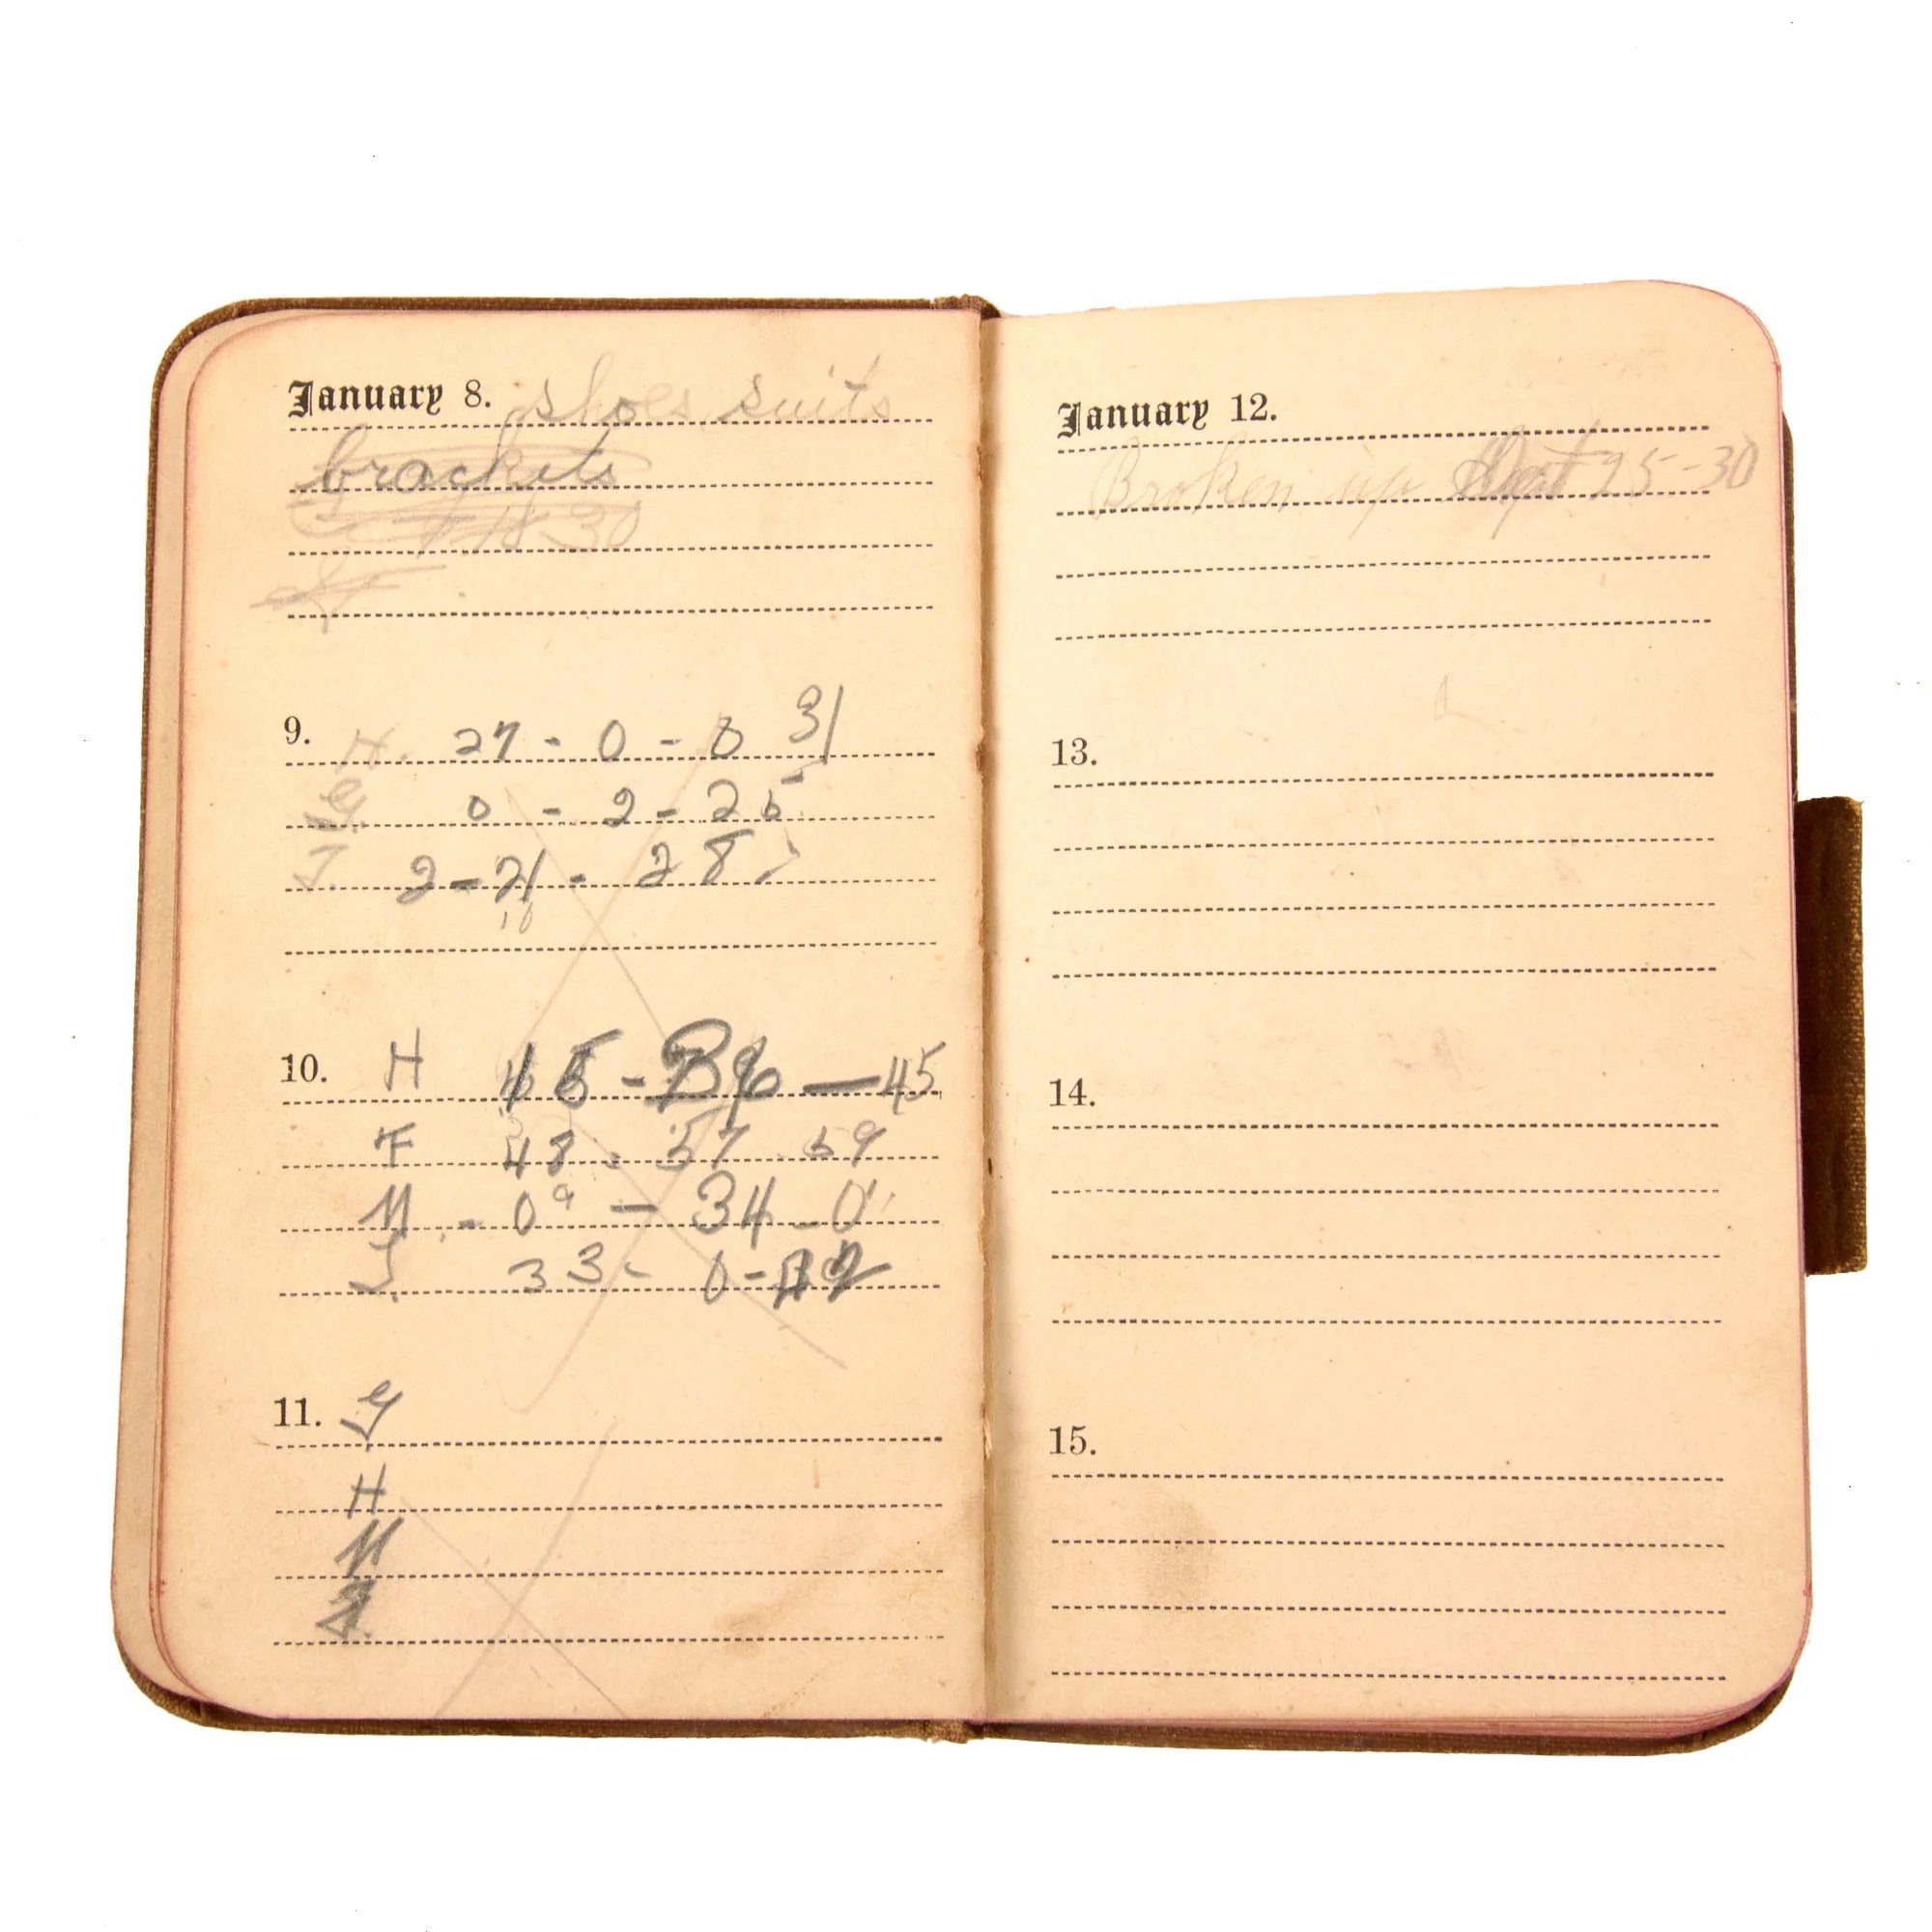 January 8. shoes suits
brackets
30
9. H. 27 - 0 - 0 31
G. 0 - 2 - 25
J. 2 - 21 - 28
10
10. H 45
F 48 - 57 59
M - 0 9 - 34 - 0
J. 33 - 0 -
11. G
H
M
J.
January 12.
Broken up Sept 25-30
13.
14.
15.